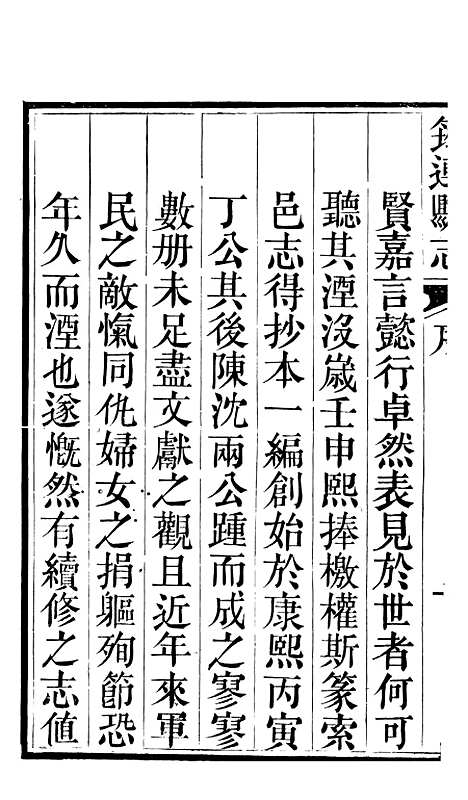 筠連縣志
序
賢嘉言懿行卓然表見於世者何可
聽其湮沒歲壬申熙捧檄權斯篆索
邑志得抄本一編創始於康熙丙寅
丁公其後陳沈兩公踵而成之寥寥
數册未足盡文獻之觀且近年來軍
民之敵愾同仇婦女之捐軀殉節恐
年久而湮也遂慨然有續修之志值